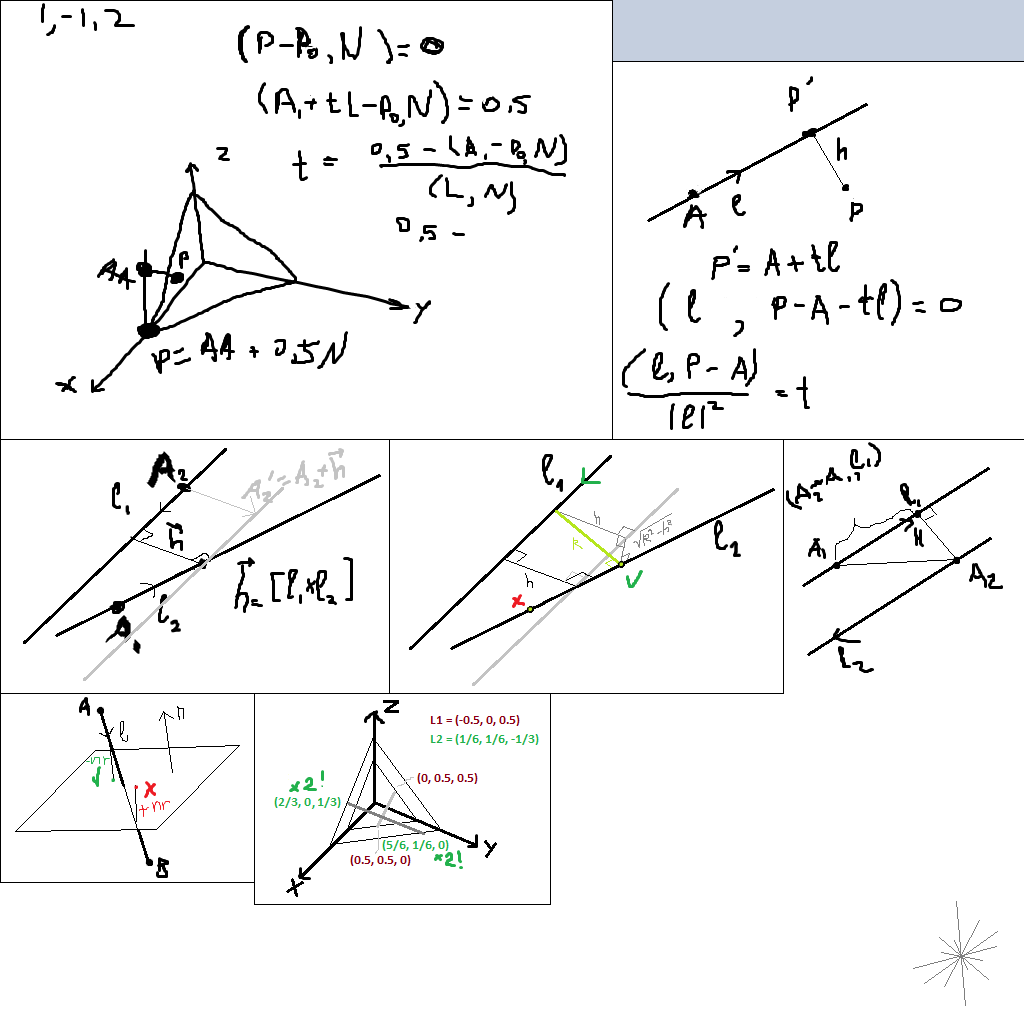 1, -1, 2
(P-P₀, N) = 0
(A₁+tL-P₀, N) = 0.5
t = 0,5 - (A₁-P₀, N)
(L, N)
0,5 -
Z
AA
P
Y
X
P = AA + 0,5N
P'
h
A
l
P
P' = A + tl
(l, P-A-tl) = 0
(l, P-A)
|l|² = t
A₂
A₂' = A₂ + h⃗
l₁
h⃗
h⃗ = [l₁×l₂]
l₂
A₁
l₁
h
R
√R²-h²
l₂
h
x
(A₂-A₁, l₁)
l₁
A₁
H
A₂
l₂
A
n
l
-nr
x
+nr
B
Z
L1 = (-0.5, 0, 0.5)
L2 = (1/6, 1/6, -1/3)
x2!
(0, 0.5, 0.5)
(2/3, 0, 1/3)
(5/6, 1/6, 0)
Y
(0.5, 0.5, 0)
x2!
X